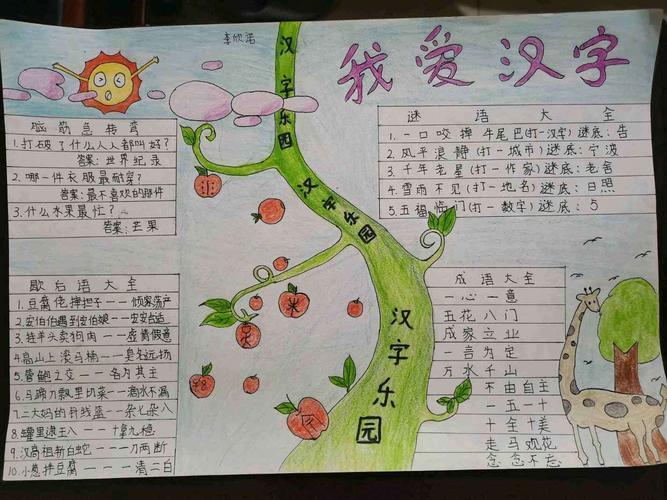 李欣诺
我爱汉字
汉字乐园
汉字乐园
汉字乐园
脑筋急转弯
1.打破了什么人人都叫好?
答案:世界纪录
2.哪一件衣服最耐穿?
答案:最不喜欢的那件
3.什么水果最忙?
答案:芒果
谜语大全
1.一口咬掉牛尾巴(打一汉字)谜底:告
2.风平浪静(打一城市)谜底:宁波
3.千年老星(打一作家)谜底:老舍
4.雪雨不见(打一地名)谜底:日照
5.五福临门(打一数字)谜底:5
歇后语大全
1.豆腐佬摔担子——倾家荡产
3.挂羊头卖狗肉——虚情假意
4.高山上滚马桶——臭名远扬
5.管鲍之交——各为其主
6.马蹄刀瓢里切菜——滴水不漏
7.二大妈的针线筐——杂七杂八
8.罐里逮王八——十拿九稳
9.汉高祖斩白蛇——一刀两断
10.小葱拌豆腐——一清二白
成语大全
一心一意
五花八门
成家立业
一言为定
万水千山
不由自主
一五一十
十全十美
走马观花
念念不忘